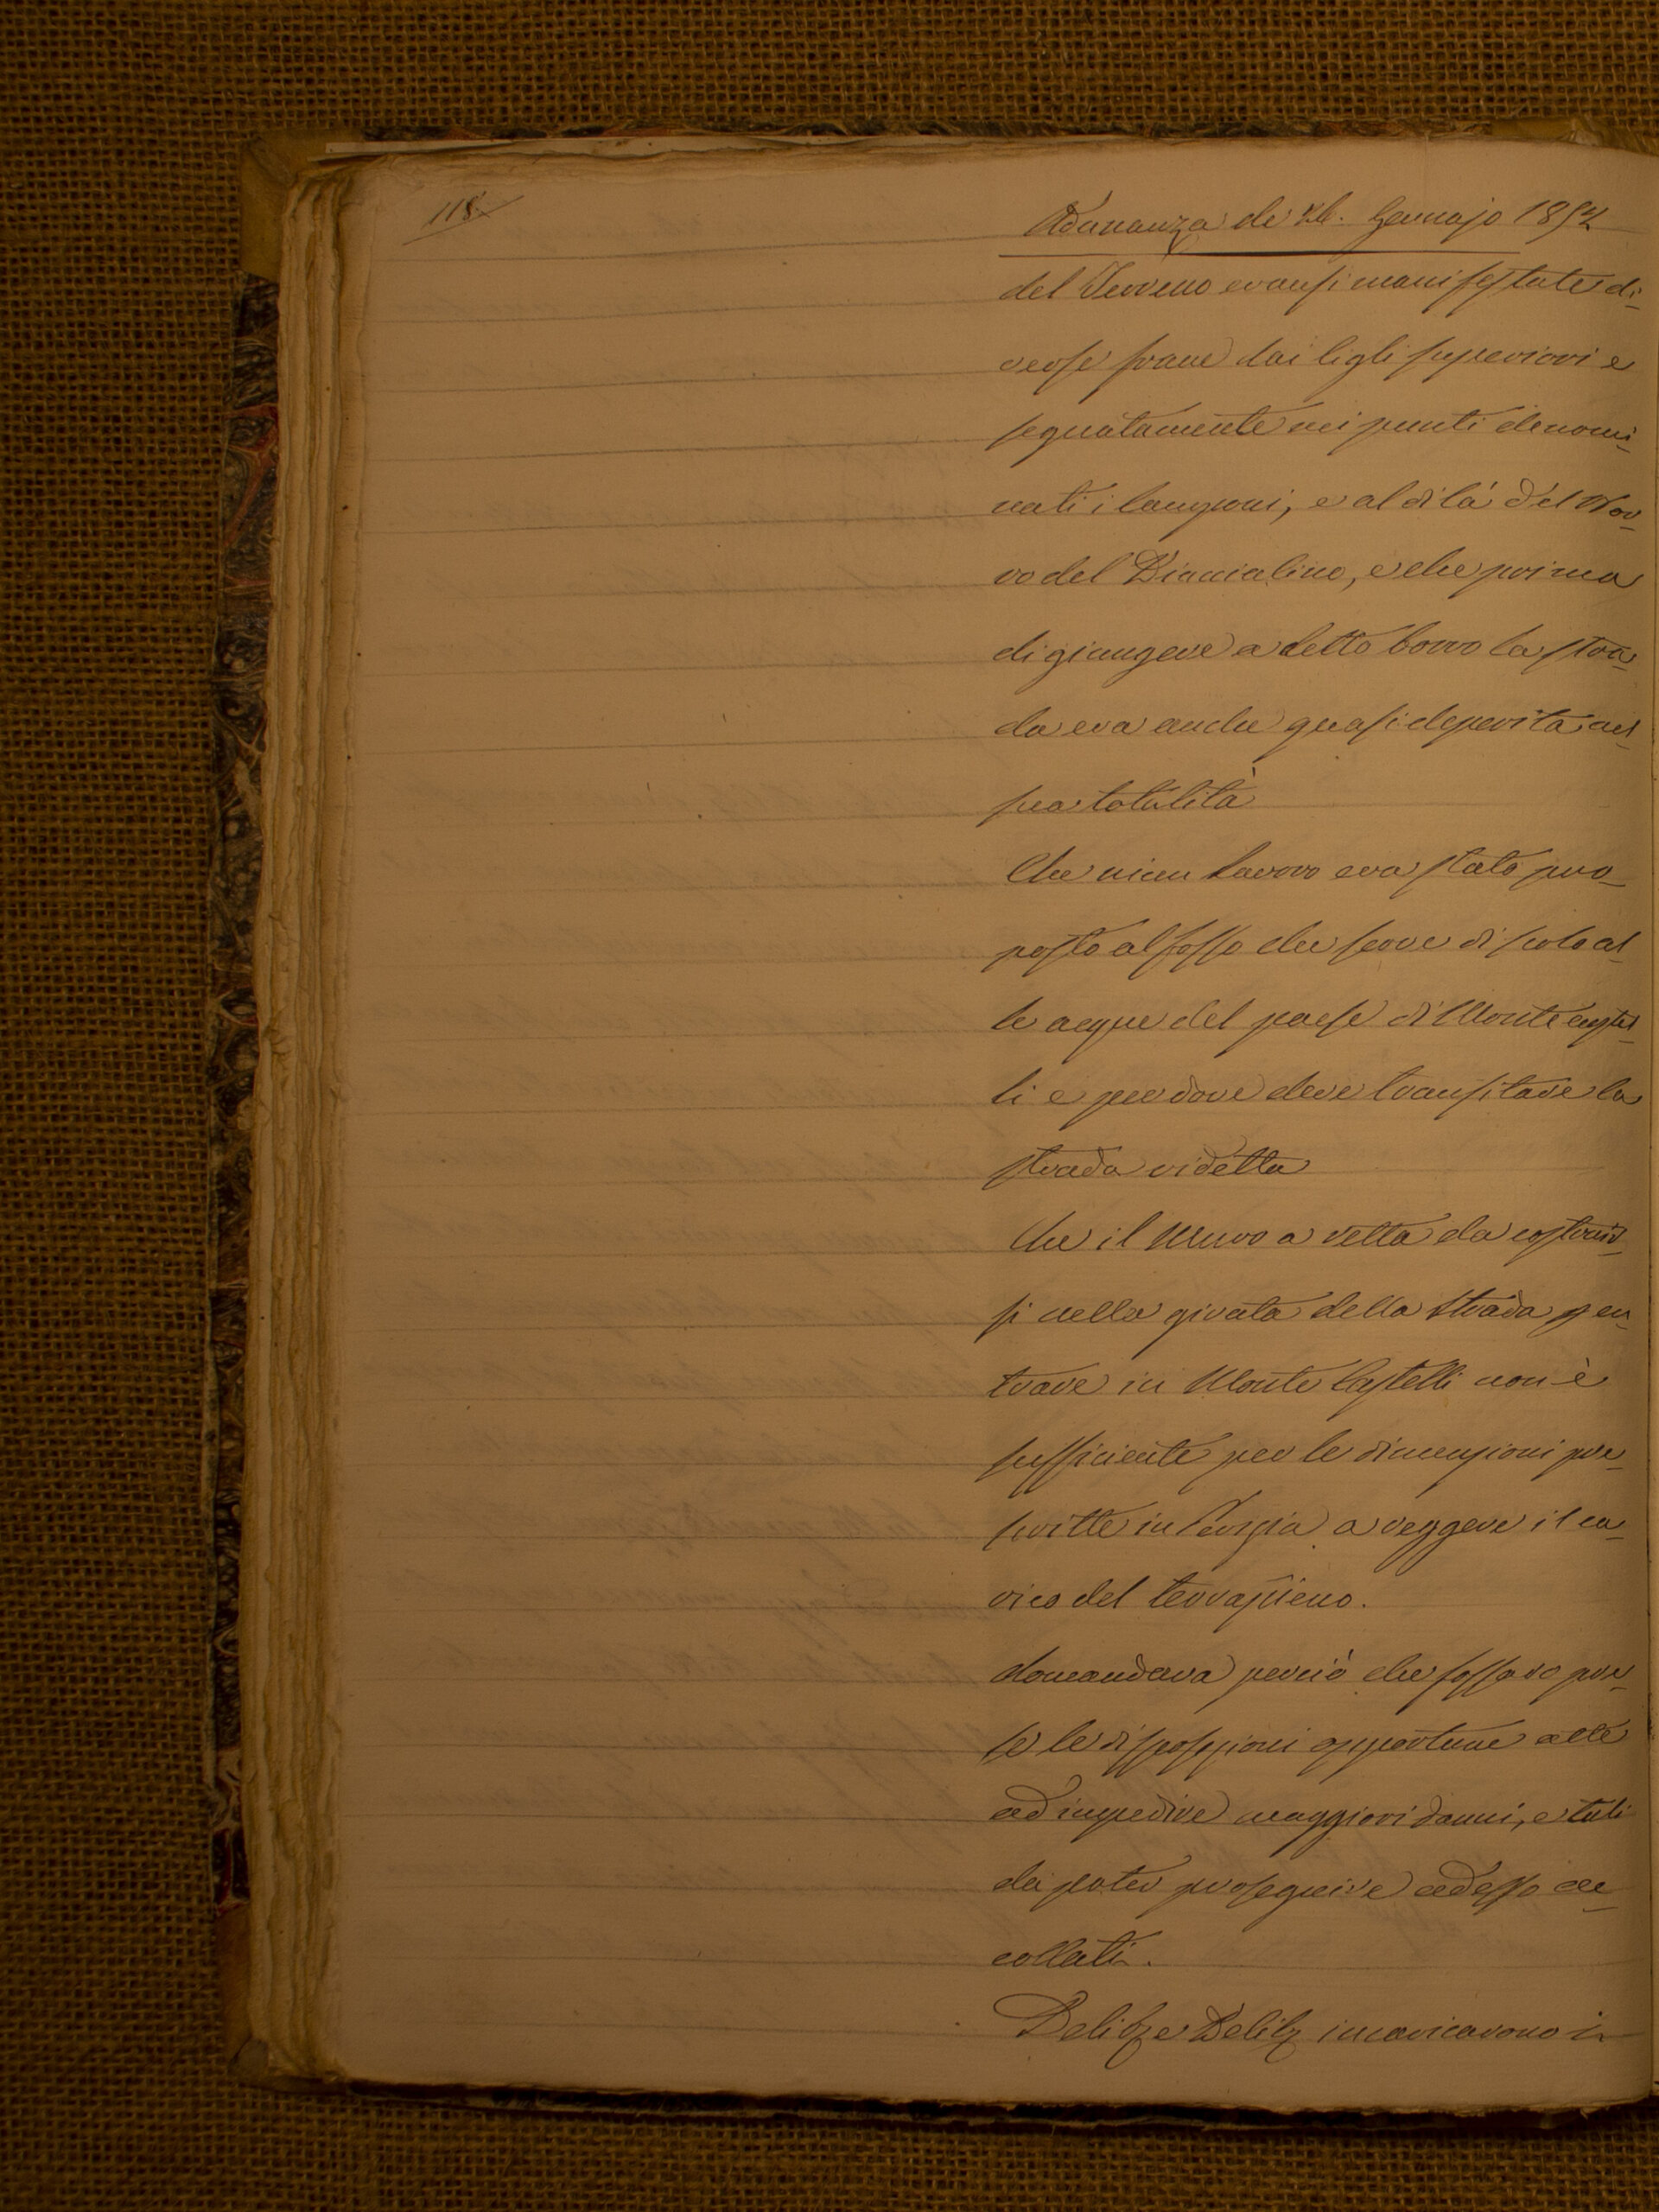 118
Adunanza de 26. Gennajo 1852
del Terreno eransi manifestate di-
verse frane dai cigli superiori e
segnatamente nei punti denomi-
nati i lamponi, e al di là del Bor-
ro del Diaccialino, e che prima
di giungere a detto borro la stra-
da era anche quasi deperita nel-
sua totalità
Che niun lavoro era stato pro-
posto al fosso che serve di scolo al-
le acque del paese di Monte castel-
li e per dove deve transitare la
strada ridetta
Che il Muro a retta da costruir-
si nella girata della Strada p en-
trare in Monte Castelli non è
sufficiente per le dimensioni pre-
scritte in Perizia a reggere il ca-
rico del terrapieno.
domandava perciò che fossero pre-
se le disposizioni opportune atte
ad impedire maggiori danni, e tali
da poter proseguire adesso ac-
collati.
Delibe Delib incaricarono i